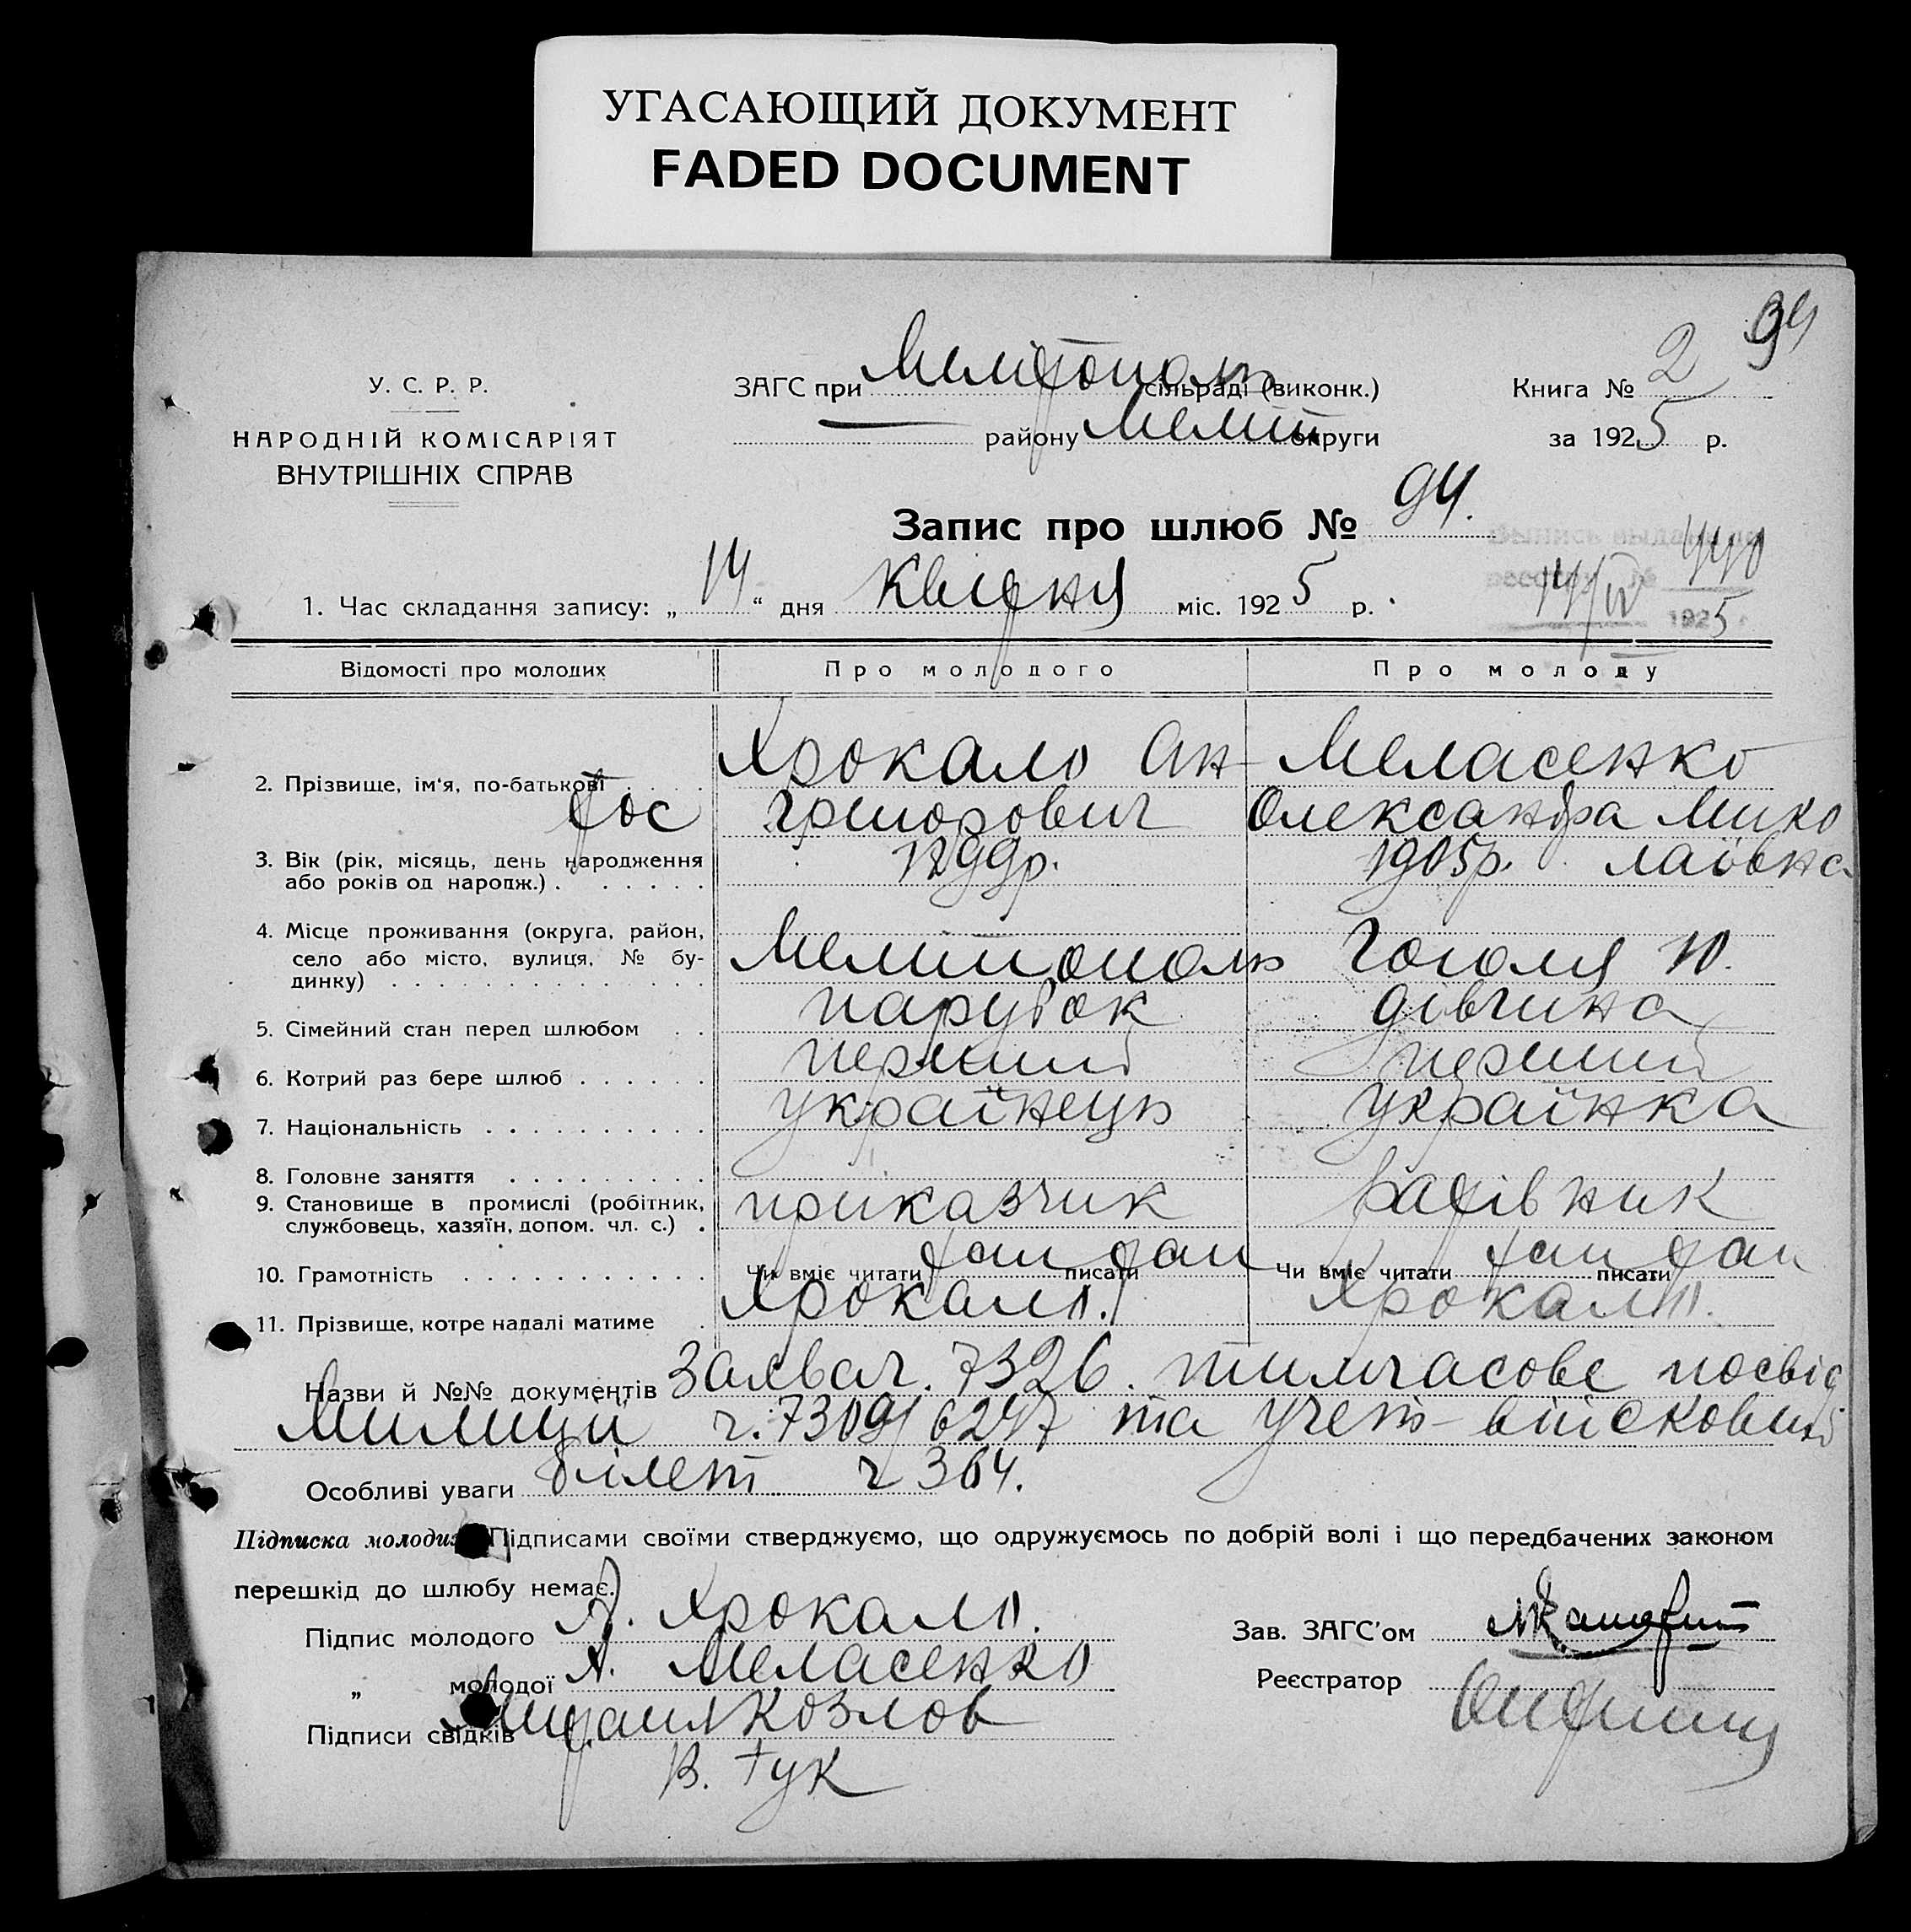 УГАСАЮЩИЙ ДОКУМЕНТ
FADED DOCUMENT
94
У. С. Р. Р.
НАРОДНІЙ КОМІСАРІЯТ
ВНУТРІШНІХ СПРАВ
ЗАГС при Мелітополь сільраді (виконк.)
району Меліт округи
Книга № 2
за 1925 р.
Запис про шлюб № 94.
Выпись выдана по
реестру № 440
14/IV 1925
1. Час складання запису: „ 14 “ дня Квитня міс. 1925 р.
Відомості про молодих Про молодого Про молоду
2. Прізвище, ім'я, по-батькові Хрокало Ан- Меласенко
тос Григорович Олександра Мико
3. Вік (рік, місяць, день народження 1899р. 1905р. лаївна
або років од народж.)
4. Місце проживання (округа, район,
село або місто, вулиця, № бу- Мелітополь Гоголя 10.
динку)
5. Сімейний стан перед шлюбом парубок дівчина
6. Котрий раз бере шлюб перший перший
7. Національність українець українка
8. Головне заняття
9. Становище в промислі (робітник, приказчик
службовець, хазяїн, допом. чл. с.)
10. Грамотність Чи вміє читати так писати так Чи вміє читати так писати так
11. Прізвище, котре надалі матиме Хрокало. Хрокало.
Назви й №№ документів 7326. тимчасове посвід
Милиции ч. 7309/6247 та учет- війсковий
Особливі уваги білет ч 364.
Підписка молодих Підписами своїми стверджуємо, що одружуємось по добрій волі і що передбачених законом
перешкід до шлюбу немає.
Підпис молодого А. Хрокало.
„ молодої А. Меласенко
Підписи свідків Михаил Козлов
В. Гук
Зав. ЗАГС'ом
Реєстратор